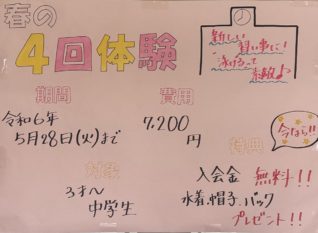 春の
4回体験
新しい
習い事に!
泳げるって
素敵♪
期間
令和6年
5月28日(火)まで
費用
7,200
円
対象
3才〜
中学生
特典
今なら!!
入会金 無料!!
水着、帽子、バック
プレゼント!!